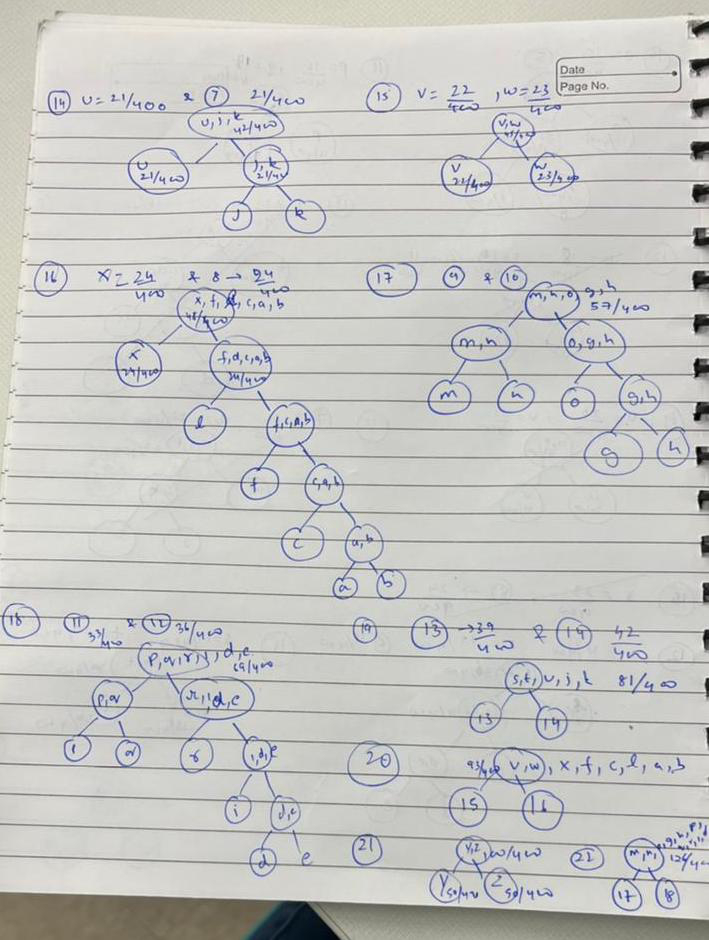 Date
Page No.
14 U = 21/400 & 7 21/400
U, j, k
42/400
U
21/400
j, k
21/400
j k
15 V = 22/400 , W = 23/400
V, W
45/400
V
22/400
W
23/400
16 X = 24/400 & 8 → 24/400
x, f, l, c, a, b
48/400
X
24/400
24/400
l
f, c, a, b
f
c, a, b
c
a, b
a b
17 9 & 10
m, n, o, g, h
57/400
m, n
o, g, h
m n o
g, h
g h
18 11 33/400 & 12 36/400
69/400
r
i
d, e
d e
19 13 → 39/400 & 14 42/400
s, t, U, j, k 81/400
13 14
20 93/400 V, W, X, f, c, l, a, b
15 16
21
Y 50/400 Z 50/400
22
17 18